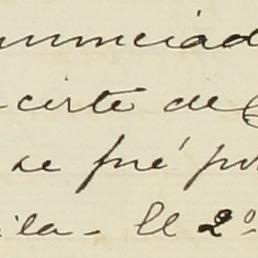 nunciad
cirte de
se fué po
ila - El 2º